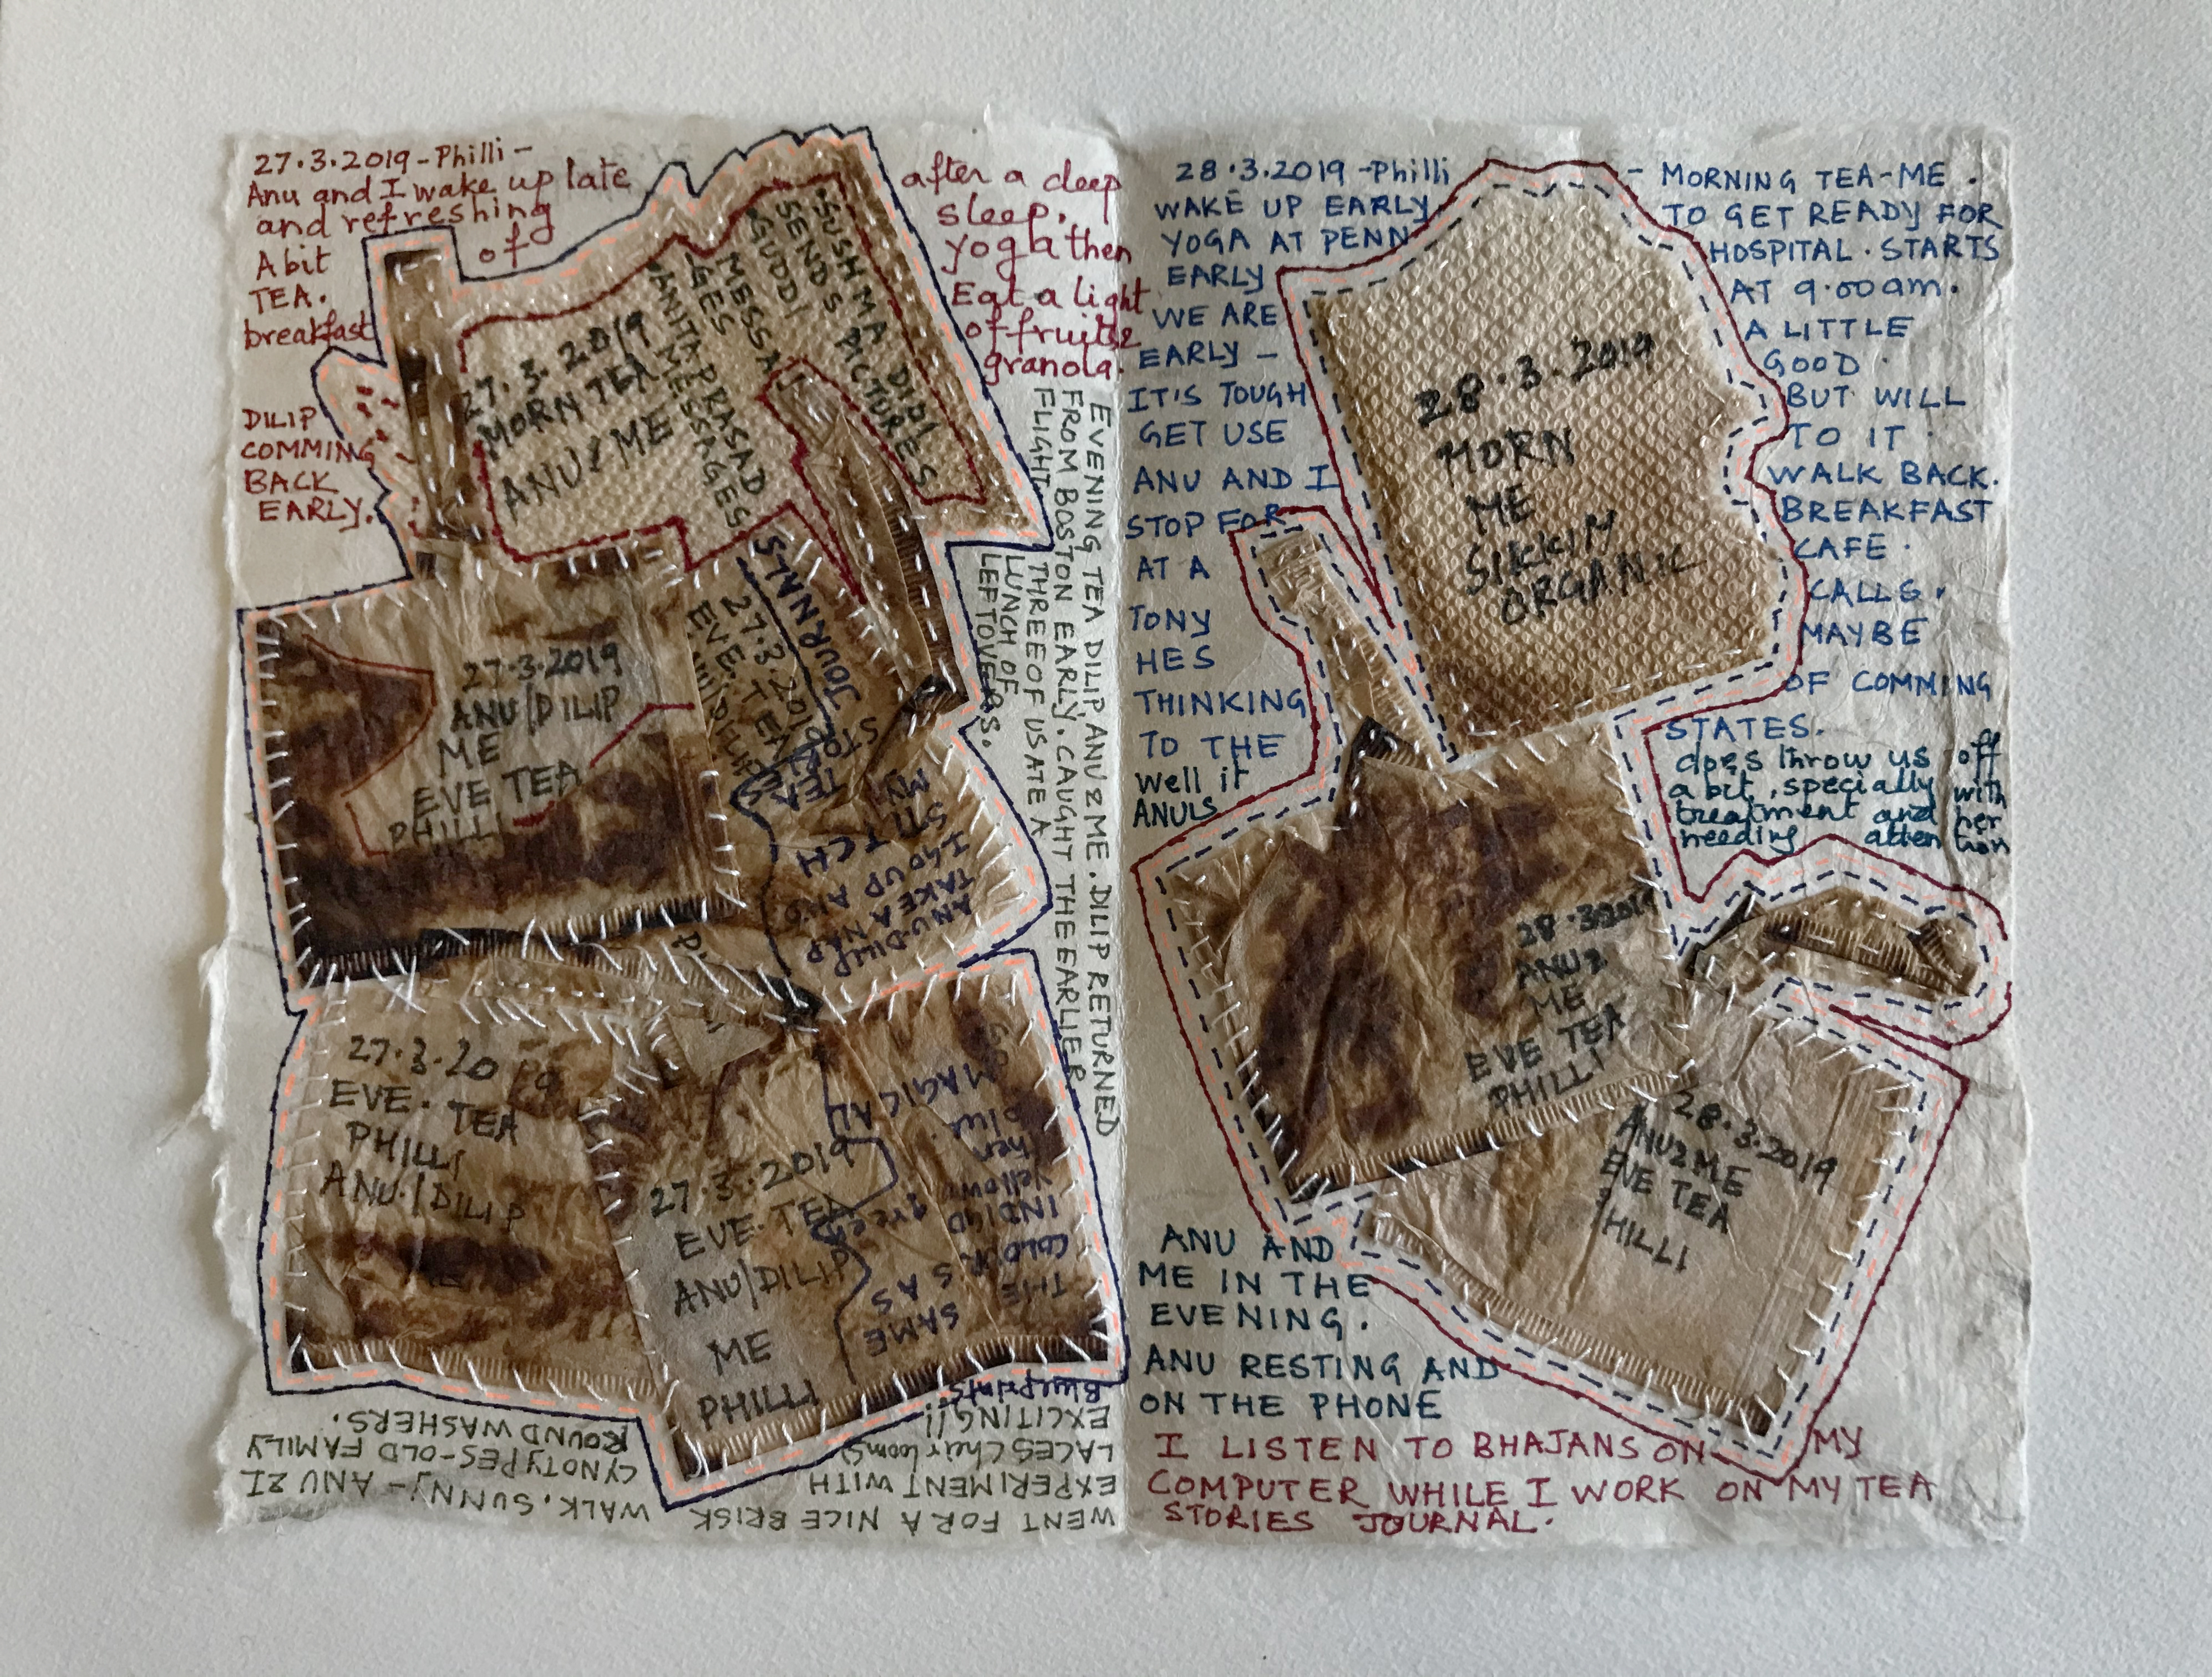 27.3.2019-Philli-
Anu and I wake up late
and refreshing
of
A bit
TEA.
breakfast
after a deep
sleep.
yoga then
Eat a light
of fruits &
granola.
DILIP
COMMING
BACK
EARLY.
27.3.2019
MORN TEA
ANU & ME
SUSHMA DIDI
SENDS PICTURES
GUDDI
MESSA
GES
ANITA PRASAD
MESSAGES
EVENING TEA DILIP, ANU & ME. DILIP RETURNED
FROM BOSTON EARLY. CAUGHT THE EARLIER
FLIGHT. THREE OF US ATE A
LUNCH OF
LEFTOVERS.
27.3.2019
ANU/DILIP
ME
EVE TEA
PHILLI
27.3.2019
EVE. TEA
ANU/DILIP
ANU-DILIP
TAKE A NAP
I GO UP AND
STITCH
MY
TEA
STORIES
JOURNALS
27.3.2019
EVE. TEA
PHILLI
ANU./DILIP
27.3.2019
EVE. TEA
ANU/DILIP
ME
PHILLI
WENT FOR A NICE BRISK
WALK. SUNNY - ANU & I
EXPERIMENT WITH
CYNOTYPES-OLD FAMILY
LACES (heirlooms)
ROUND WASHERS.
EXCITING!!
Blueprints
SAME
COLOUR'S AS
THE
INDIGO
green
yellow
then
blue.
MAGICAL
28.3.2019-Philli
WAKE UP EARLY
YOGA AT PENN
EARLY
WE ARE
EARLY -
IT'S TOUGH
GET USE
ANU AND I
STOP FOR
AT A
TONY
HES
THINKING
TO THE
well it
ANU'S
- MORNING TEA-ME.
TO GET READY FOR
HOSPITAL. STARTS
AT 9.00am.
A LITTLE
GOOD.
BUT WILL
TO IT.
WALK BACK.
BREAKFAST
CAFE.
CALLS.
MAYBE
OF COMMING
STATES.
does throw us off
a bit, specially with
treatment and her
needing attention
28.3.2019
MORN
ME
SIKKIM
ORGANIC
28.3.2019
ANU &
ME
EVE TEA
PHILLI
28.3.2019
ANU & ME
EVE TEA
PHILLI
ANU AND
ME IN THE
EVENING.
ANU RESTING AND
ON THE PHONE
I LISTEN TO BHAJANS ON MY
COMPUTER WHILE I WORK ON MY TEA
STORIES JOURNAL.